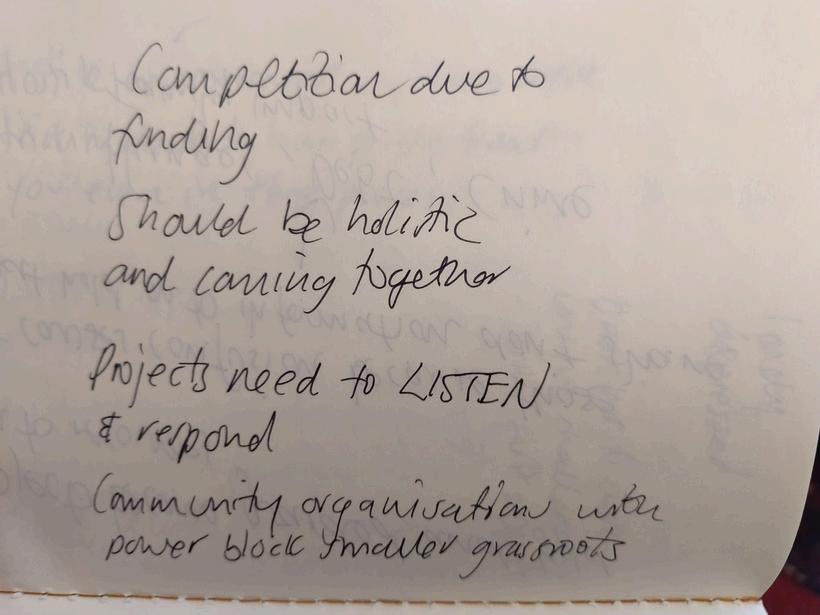 Competition due to
funding
Should be holistic
and coming together
Projects need to LISTEN
& respond
Community organisations with
power block smaller grassroots